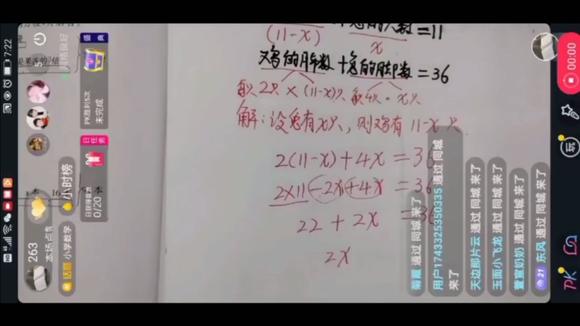 (11-x) x =11
鸡的脚数+兔的脚数=36
2只×(11-x)只 4只×x只
解:设兔有x只,则鸡有11-x只
2(11-x)+4x=36
2×11-2x+4x=36
22+2x=36
2x
7:22
263
本场点赞
话题 小学数学
小时榜
盛典
PK胜利5次
未完成
日任务
0/20
菊香 通过 同城 来了
用户1743325350335 通过 同城 来了
天边那片云 通过 同城 来了
玉面小飞龙 通过 同城 来了
萱萱奶奶 通过 同城 来了
21 东风 通过 同城 来了
PK
玩
00:00